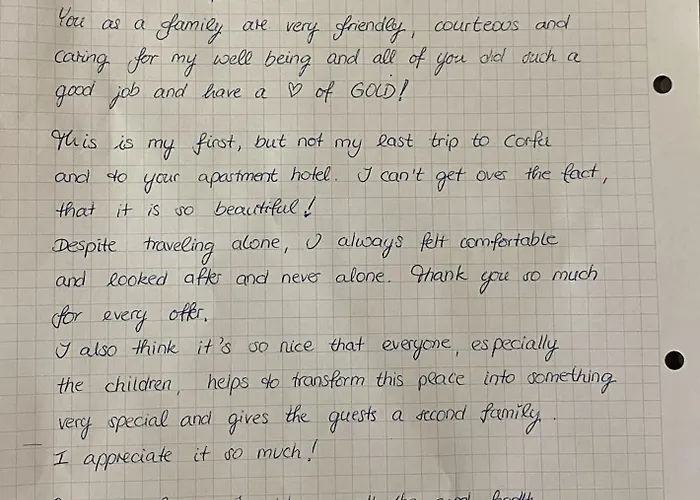 You as a family are very friendly, courteous and
caring for my well being and all of you did such a
good job and have a ♡ of GOLD!
This is my first, but not my last trip to Corfu
and to your apastment hotel. I can't get over the fact,
that it is so beautiful!
Despite traveling alone, I always felt comfortable
and looked after and never alone. Thank you so much
for every offer.
I also think it's so nice that everyone, especially
the children, helps to transform this place into something
very special and gives the guests a second family.
I appreciate it so much!